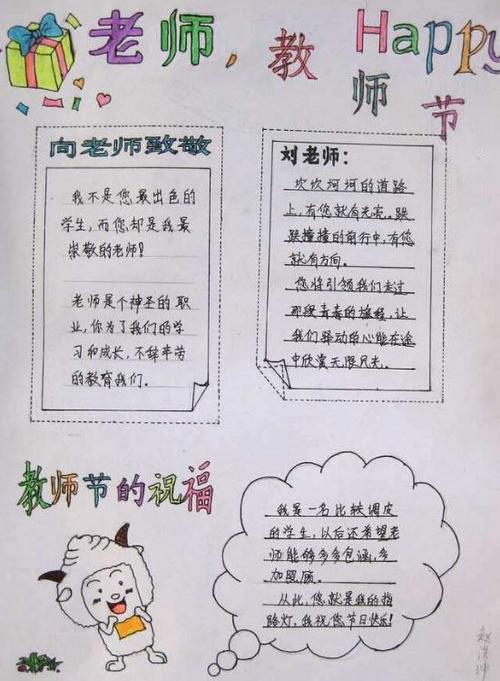 老师，教师节
Happy
向老师致敬
我不是您最出色的
学生，而您却是我最
崇敬的老师！
老师是个神圣的职
业，你为了我们的学
习和成长，不辞辛苦
的教育我们。
刘老师：
坎坎坷坷的道路
上，有您就有光亮。跌
跌撞撞的前行中，有您
就有方向。
您将引领我们走过
那段青春的旅程，让
我们驿动的心能在途
中欣赏无限风光。
教师节的祝福
我是一名比较调皮
的学生，以后还希望老
师能够多多包涵，多
加照顾。
从此，您就是我的指
路灯，我祝您节日快乐！